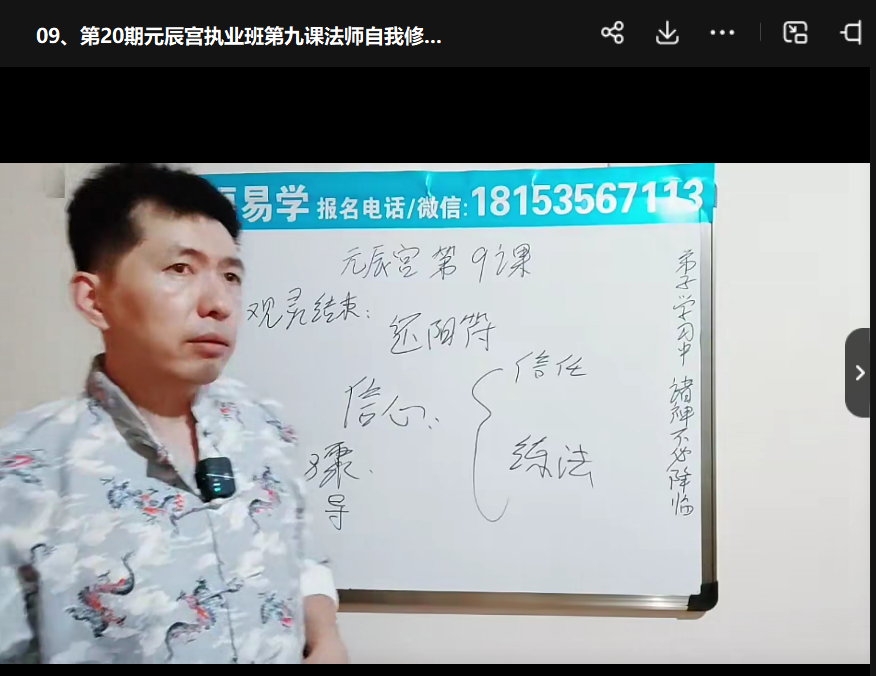 09、第20期元辰宫执业班第九课法师自我修...
易学 报名电话/微信:18153567113
元辰宫第9课
观灵结束:
还阳符
信心:
信任
练法
导
弟子学习中 诸神不必降临